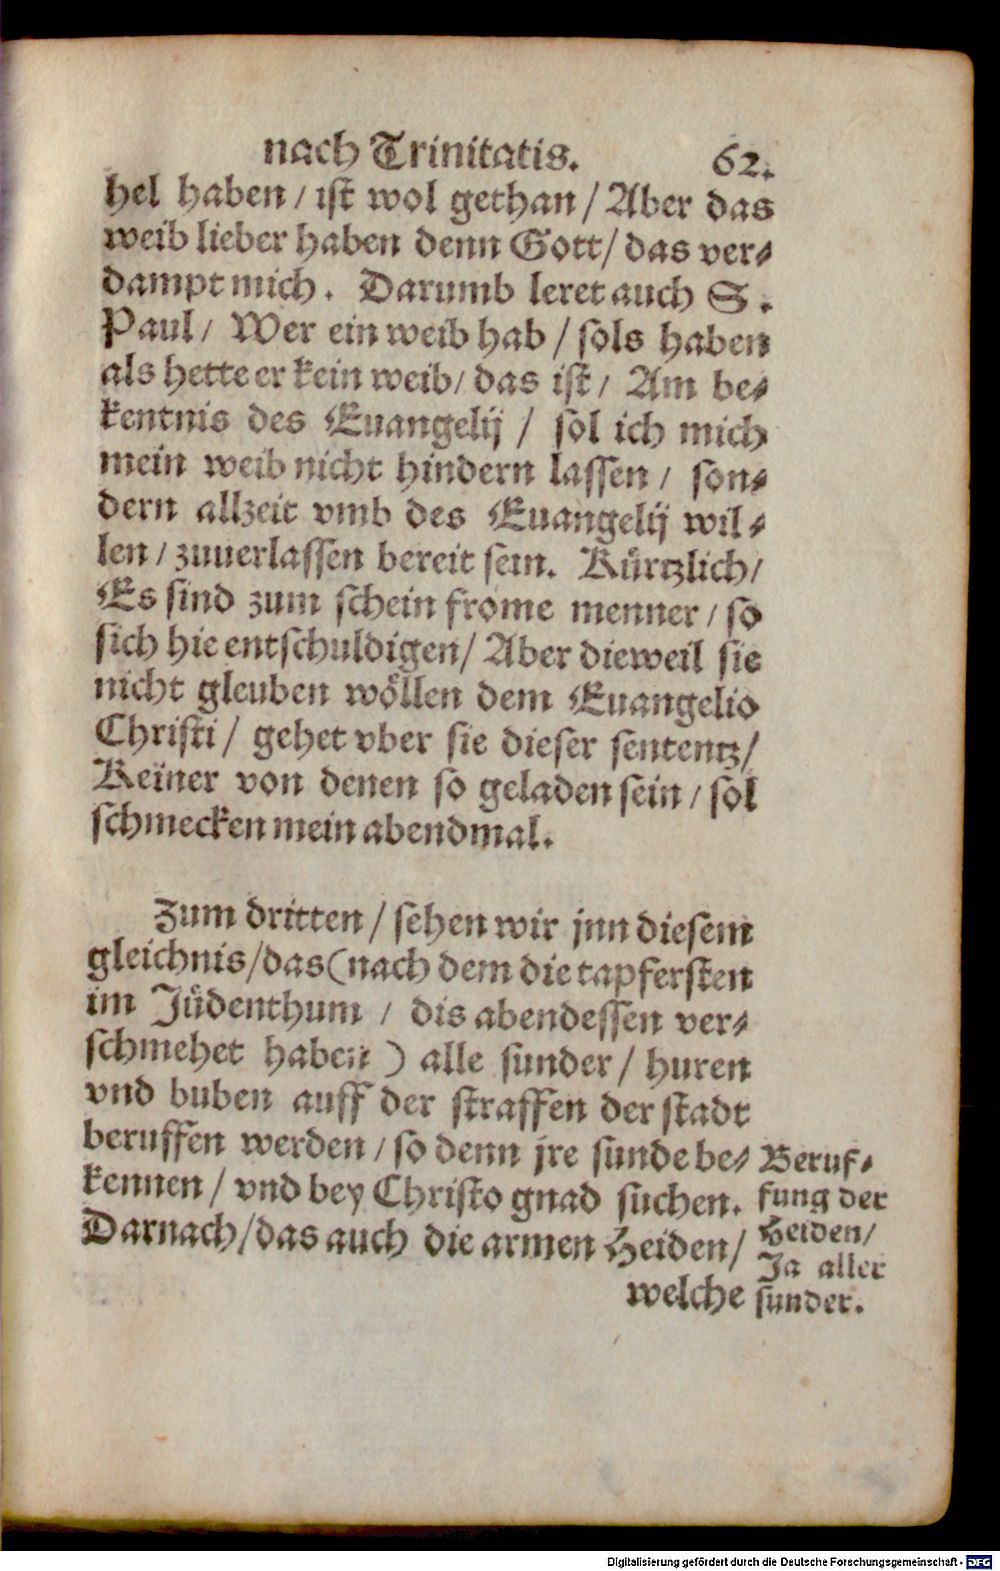 nach Trinitatis. 62.
hel haben / ist wol gethan / Aber das
weib lieber haben denn Gott / das ver-
dampt mich. Darumb leret auch S.
Paul / Wer ein weib hab / sols haben
als hette er kein weib / das ist / Am be-
kentnis des Euangelij / sol ich mich
mein weib nicht hindern lassen / son-
dern allzeit vmb des Euangelij wil-
len / zuuerlassen bereit sein. Kürtzlich /
Es sind zum schein frome menner / so
sich hie entschuldigen / Aber dieweil sie
nicht gleuben wöllen dem Euangelio
Christi / gehet vber sie dieser sententz /
Keiner von denen so geladen sein / sol
schmecken mein abendmal.
Zum dritten / sehen wir jnn diesem
gleichnis / das (nach dem die tapfersten
im Jüdenthum / dis abendessen ver-
schmehet haben) alle sunder / huren
vnd buben auff der straffen der stadt
beruffen werden / so denn jre sunde be-
kennen / vnd bey Christo gnad suchen.
Darnach / das auch die armen Heiden /
welche
Beruf-
fung der
Heiden /
Ja aller
sunder.
Digitalisierung gefördert durch die Deutsche Forschungsgemeinschaft - DFG